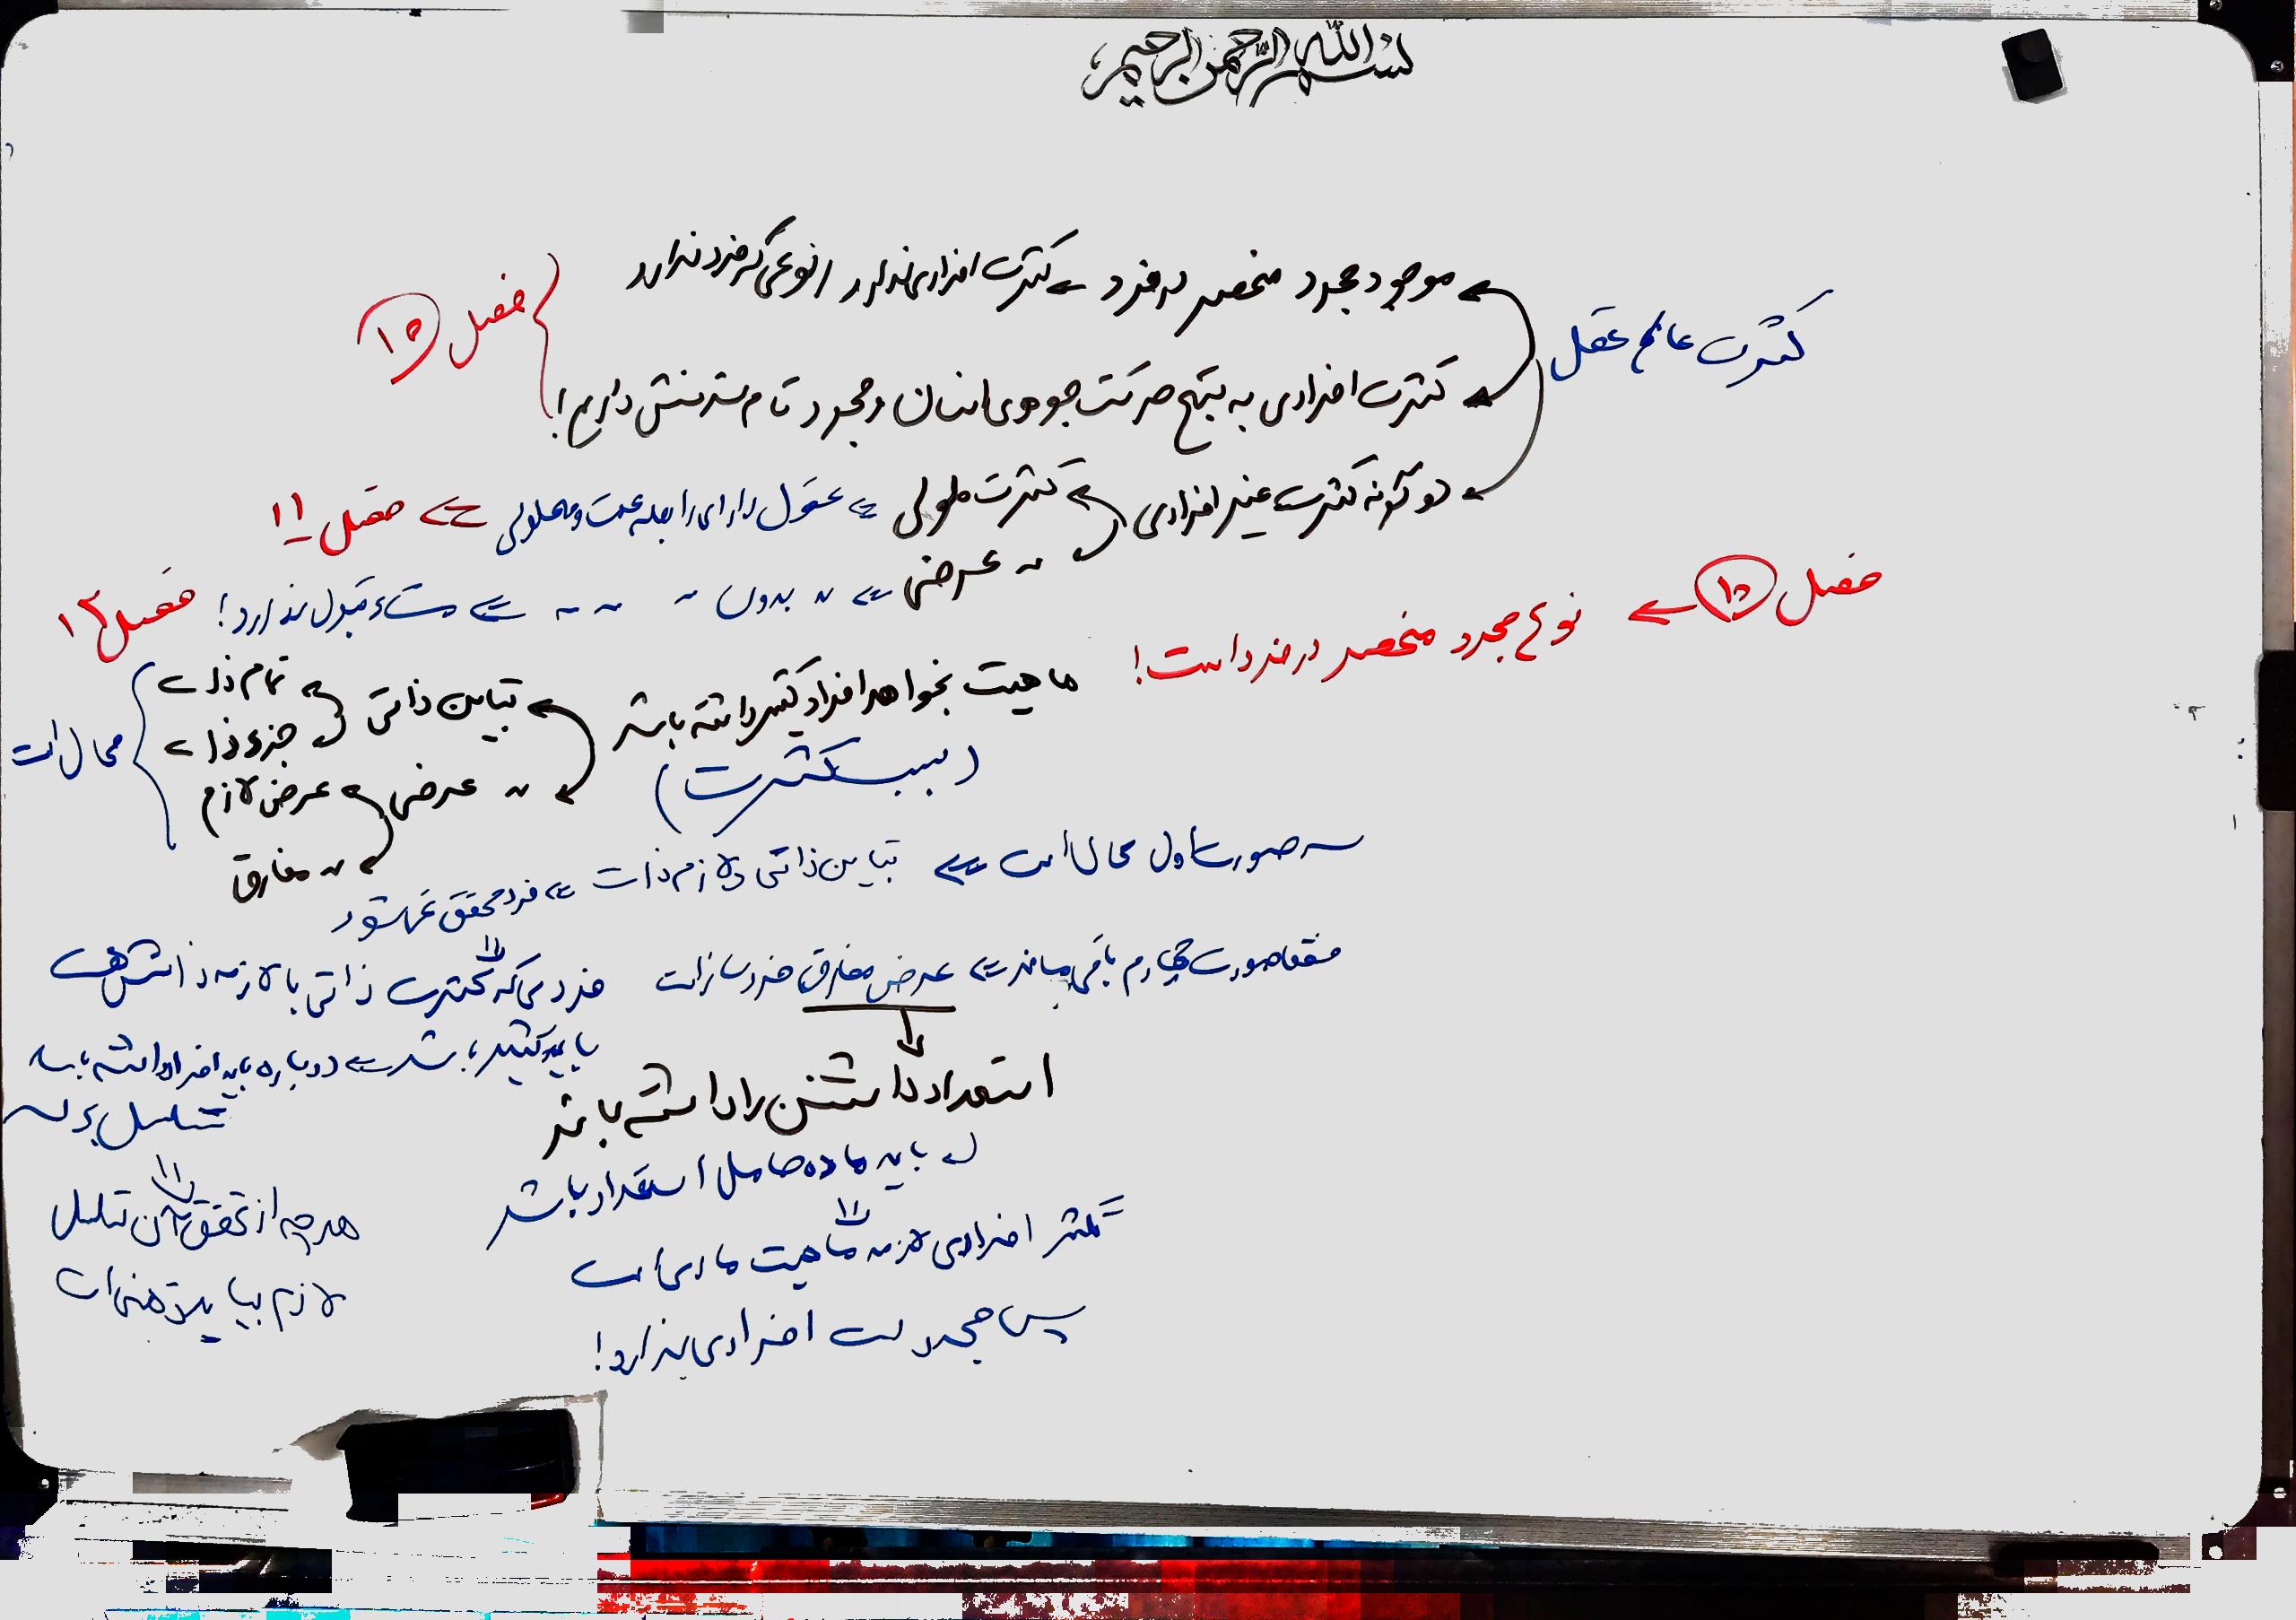 بسم الله الرحمن الرحیم
کثرت عالم عقل
موجود مجرد منحصر در فرد ← کثرت افرادی ندارد / نوعی که فرد ندارد
کثرت افرادی به تبع حرکت جوهری انسان و مجرد تام شدنش داریم!
فصل ۱۰
دو گونه کثرت غیر افرادی
کثرت طولی ⇐ عقول دارای رابطه علت و معلولی ⇐ فصل ۱۱
〃 عرضی ⇐ 〃 بدون 〃 〃 〃 ⇐ مشاء قبول ندارد! فصل ۱۲
فصل ۱۰ ← نوع مجرد منحصر در فرد است!
ماهیت بخواهد افراد کثیر داشته باشد
(سبب کثرت)
تباین ذاتی
تمام ذات
جزء ذات
〃 عرضی
عرض لازم
〃 مفارق
محال است
سه صورت اول محال است ⇐ تباین ذاتی و لازم ذات ⇐ فرد محقق نمی‌شود
فردی که کثرت ذاتی یا لازمه ذاتش هست
باید کثیر باشد ⇐ دوباره باید افراد داشته باشد
تسلسل
هرچه از تحقق آن تسلسل
لازم بیاید ممتنع است
فقط صورت چهارم باقی میماند ⇐ عرض مفارق فردساز است
استعداد داشتن را داشته باشد
باید ماده حامل استعداد باشد
تکثر افرادی لازمه ماهیت مادی است
پس مجرد کثرت افرادی ندارد!